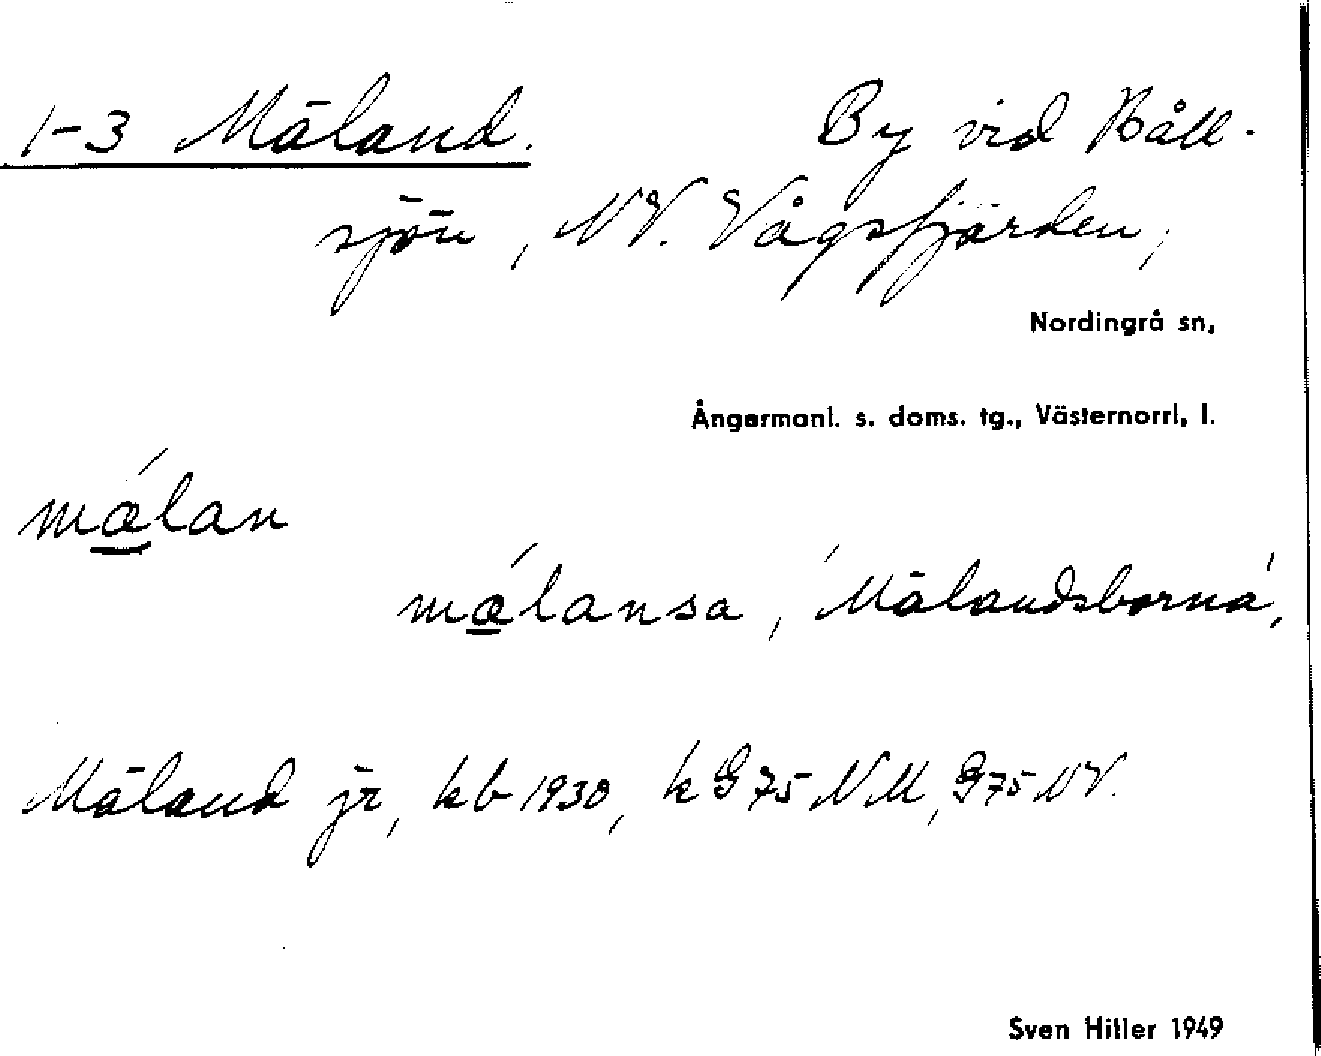 1-3 Mäland. By vid Båll-
sjön, NV. Vågsfjärden,
Nordingrå sn,
Ångermanl. s. doms. tg., Västernorrl. l.
málan
málansa, 'Mälandsborna',
Mäland jr, kb 1930, k G 75 NM, G 75 NV.
Sven Hitler 1949